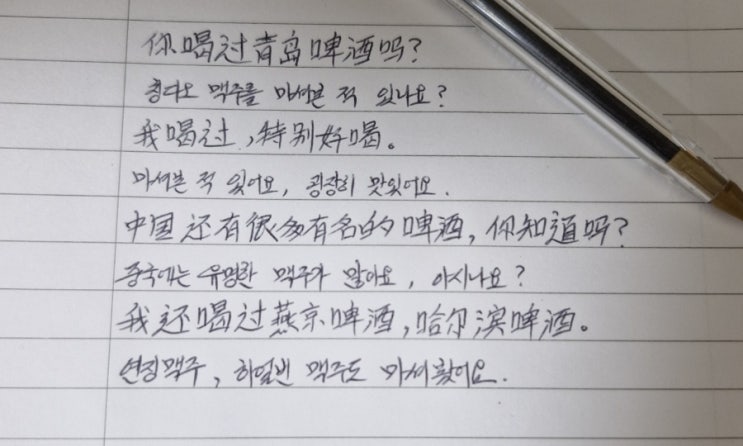 你喝过青岛啤酒吗?
칭다오 맥주를 마셔본 적 있나요?
我喝过,特别好喝。
마셔본 적 있어요, 굉장히 맛있어요.
中国还有很多有名的啤酒,你知道吗?
중국에는 유명한 맥주가 많아요, 아시나요?
我还喝过燕京啤酒,哈尔滨啤酒。
연징맥주, 하얼빈 맥주도 마셔봤어요.